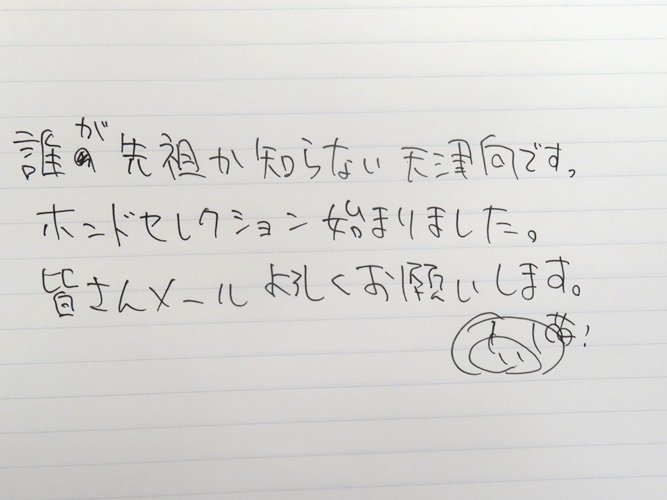 誰が先祖か知らない天津向です。
ホンドセレクション始まりました。
皆さんメールよろしくお願いします。